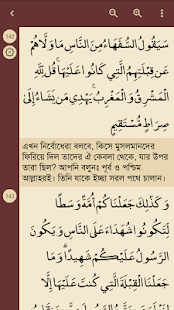 142
سَيَقُولُ السُّفَهَاءُ مِنَ النَّاسِ مَا وَلَّاهُمْ
عَن قِبْلَتِهِمُ الَّتِي كَانُوا عَلَيْهَا ۚ قُل لِّلَّهِ
الْمَشْرِقُ وَالْمَغْرِبُ ۚ يَهْدِي مَن يَشَاءُ إِلَىٰ
صِرَاطٍ مُّسْتَقِيمٍ
এখন নির্বোধেরা বলবে, কিসে মুসলমানদের
ফিরিয়ে দিল তাদের ঐ কেবলা থেকে, যার উপর
তারা ছিল? আপনি বলুনঃ পূর্ব ও পশ্চিম
আল্লাহরই। তিনি যাকে ইচ্ছা সরল পথে চালান।
143
وَكَذَٰلِكَ جَعَلْنَاكُمْ أُمَّةً وَسَطًا
لِّتَكُونُوا شُهَدَاءَ عَلَى النَّاسِ وَيَكُونَ
الرَّسُولُ عَلَيْكُمْ شَهِيدًا ۗ وَمَا
جَعَلْنَا الْقِبْلَةَ الَّتِي كُنتَ عَلَيْهَا إِلَّا